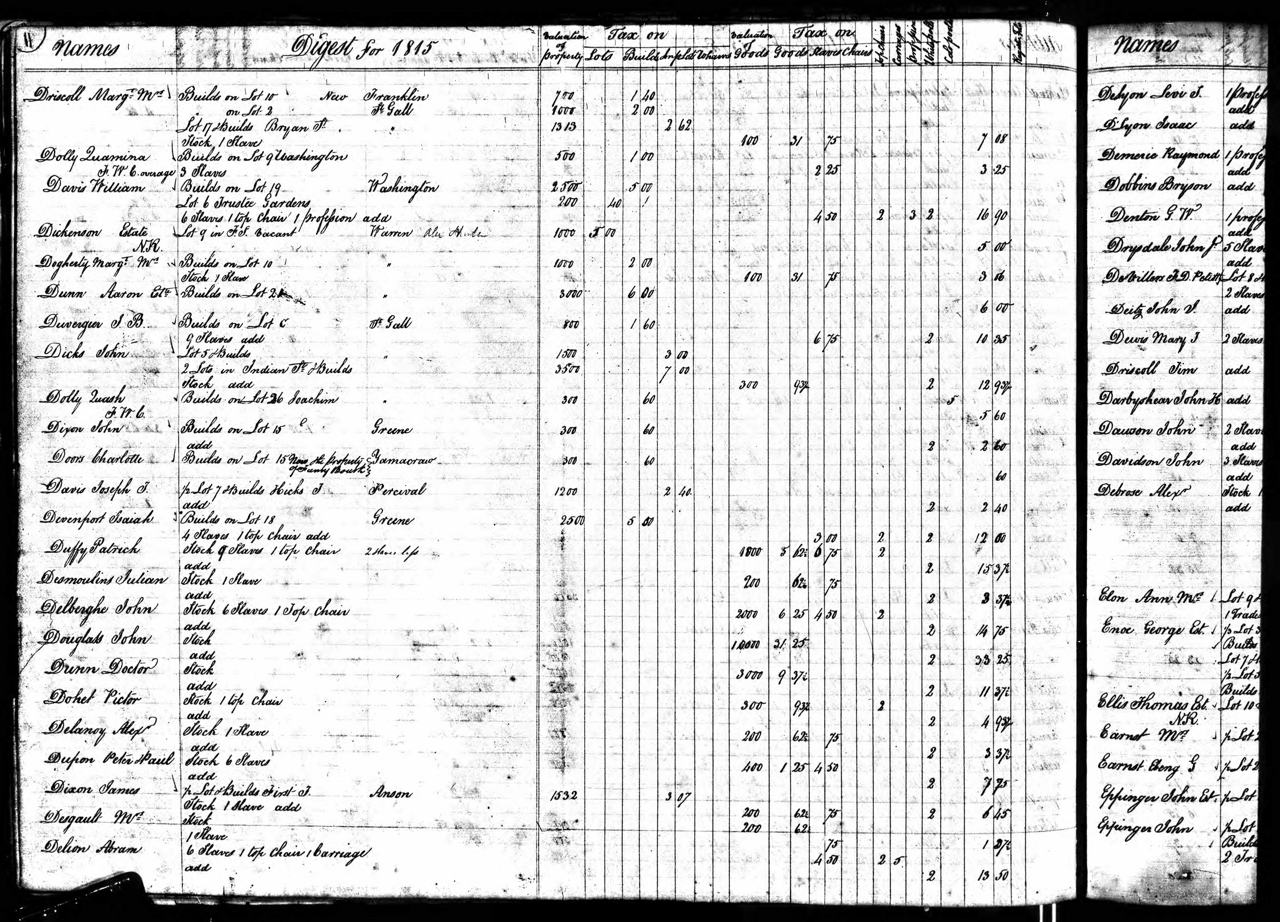 11
Names Digest for 1815 Valuation of Property Lots Tax on Builds Impld Wharves Valuation Goods Tax on Goods Slaves Chairs Names
Driscoll Margt Mrs Builds on Lot 10 New Franklin 700 1 40
" on Lot 2 St Gall 1000 2 00
Lot 17 & Builds Bryan St " 1313 2 62
Stock 1 Slave 100 31 75 7 08
Dolly Quamina Builds on Lot 9 Washington 500 1 00
F.W.C. overage 3 Slaves 2 25 3 25
Davis William Builds on Lot 19 Washington 2500 5 00
Lot 6 Trustee Gardens 200 40
6 Slaves 1 top Chair 1 profession add 4 50 2 3 2 16 90
Dickenson Estate Lot 9 in Vacant Warren 1000 5 00
N.R. 5 00
Dogherty Margt Mrs Builds on Lot 10 " 1000 2 00
Stock 1 Slave 100 31 75 3 06
Dunn Aaron Este Builds on Lot 21 " 3000 6 00
6 00
Duvergier J. B. Builds on Lot C St Gall 800 1 60
9 Slaves add 6 75 2 10 35
Dicks John Lot 5 & Builds " 1500 3 00
2 Lots in Indian St & Builds 3500 7 00
Stock add 300 93¾ 2 12 93¾
Dolly Quash Builds on Lot 26 Joachim " 300 60 5
F.W.C. 5 60
Dixon John Builds on Lot 15 Greene 300 60
add 2 2 60
Doors Charlotte Builds on Lot 15 Now the Property of Yamacraw 300 60
60
Davis Joseph J. p Lot 7 & Builds Hicks J Percival 1200 2 40
add 2 2 40
Devenport Isaiah Builds on Lot 18 Greene 2500 5 00
4 Slaves 1 top Chair add 3 00 2 2 12 00
Duffy Patrick Stock 9 Slaves 1 top Chair 1800 5 62½ 6 75 2
add 2 15 37½
Desmoulins Julian Stock 1 Slave 200 62½ 75
add 2 3 37½
Delberghe John Stock 6 Slaves 1 Top Chair 2000 6 25 4 50 2
add 2 14 75
Douglass John Stock 10000 31 25
add 2 33 25
Dunn Doctor Stock 3000 9 37½
add 2 11 37½
Dohet Victor Stock 1 top Chair 300 93¾ 2
add 2 4 93¾
Delanoy Alexr Stock 1 Slave 200 62½ 75
add 2 3 37½
Dupon Peter & Paul Stock 6 Slaves 400 1 25 4 50
add 2 7 75
Dixon James p Lot & Builds First J. Anson 1532 3 07
Stock 1 Slave add 200 62½ 75 2 6 45
Desgault Mrs Stock 200 62½
1 Slave 75 1 37½
Delion Abram 6 Slaves 1 top Chair 1 Carriage 4 50 2 5
add 2 13 50
DeLyon Levi S. 1 profess
add
DLyon Isaac add
Demeric Raymond 1 profes
add
Dobbins Bryson add
Denton G. W 1 profes
add
Drysdale John J. 5 Slave
add
Lot 8 &
2 Slaves
Deitz John J. add
Dewis Mary J 2 Slaves
Driscoll Tim add
Darbyshear John H add
Dawson John 2 Slav
add
Davidson John 3 Slaves
add
Debrose Alexr Stock 1
add
Elon Ann Mrs Lot 9 &
1 Trade
Enoe George Est. p Lot 3
Builds
Lot 7 &
p Lot 3
Builds
Ellis Thomas Est. Lot 10
N.R.
Earnst Mrs p Lot 2
Earnst G p Lot 2
Eppinger John Est. p Lot
Eppinger John p Lot
Build
2